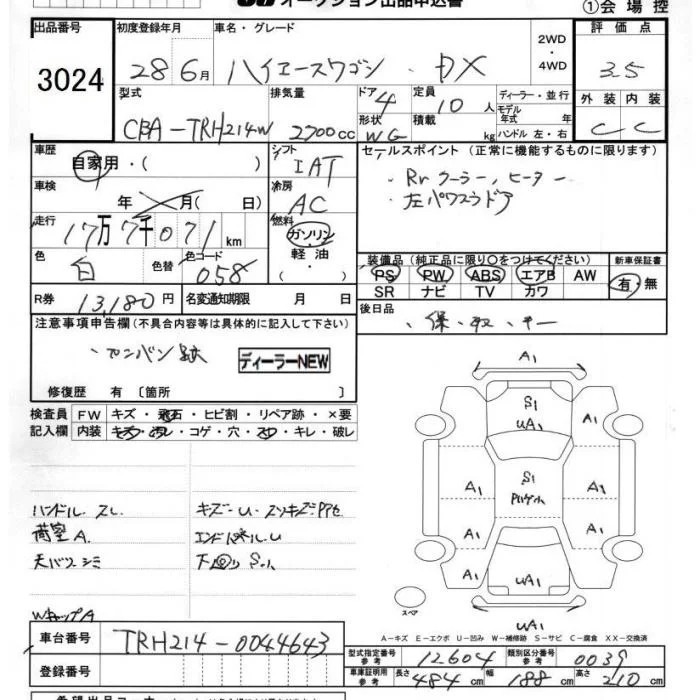 オークション出品申込書
①会場控
出品番号 初度登録年月 車名・グレード 2WD・4WD 評価点
3024 28 6月 ハイエースワゴン・DX 3.5
型式 排気量 ドア 4 定員 10人 ディーラー・並行 外装 内装
CBA-TRH214W 2700cc 形状 WG 積載 kg モデル年式 年式 ハンドル 左・右 C C
車歴 自家用・( ) シフト IAT セールスポイント (正常に機能するものに限ります)
車検 年 月( 日) 冷房 AC ・Rrクーラー,ヒーター
・左パワスラドア
走行 17万7千071km 燃料 ガソリン 軽油
色 白 色替 色コード 058
装備品 (純正品に限り○をつけてください) 新車保証書
PS PW ABS エアB AW 有・無
SR ナビ TV カワ
R券 13,180円 名変通知期限 月 日 後日品
・保・取・キー
注意事項申告欄 (不具合内容等は具体的に記入して下さい)
・カンバン跡 ディーラーNEW
修復歴 有 〔箇所 〕
検査員 FW キズ・飛石・ヒビ割・リペア跡・×要
記入欄 内装 キズ・汚レ・コゲ・穴・スレ・キレ・破レ
ハンドル スレ
荷室A
エンドパネルU
天バリシミ
下回りS
WキャップA
A1
S1
UA1
A1
A1
S1
A1
A1
A1
A1
UA1
UA1
スペア
A－キズ E－エクボ U－凹み W－補修跡 S－サビ C－腐食 XX－交換済
車台番号 TRH214-0044643
型式指定番号 参考 12604 類別区分番号 参考 0039
登録番号
車庫証明用 参考 長さ 484cm 幅 188cm 高さ 210cm